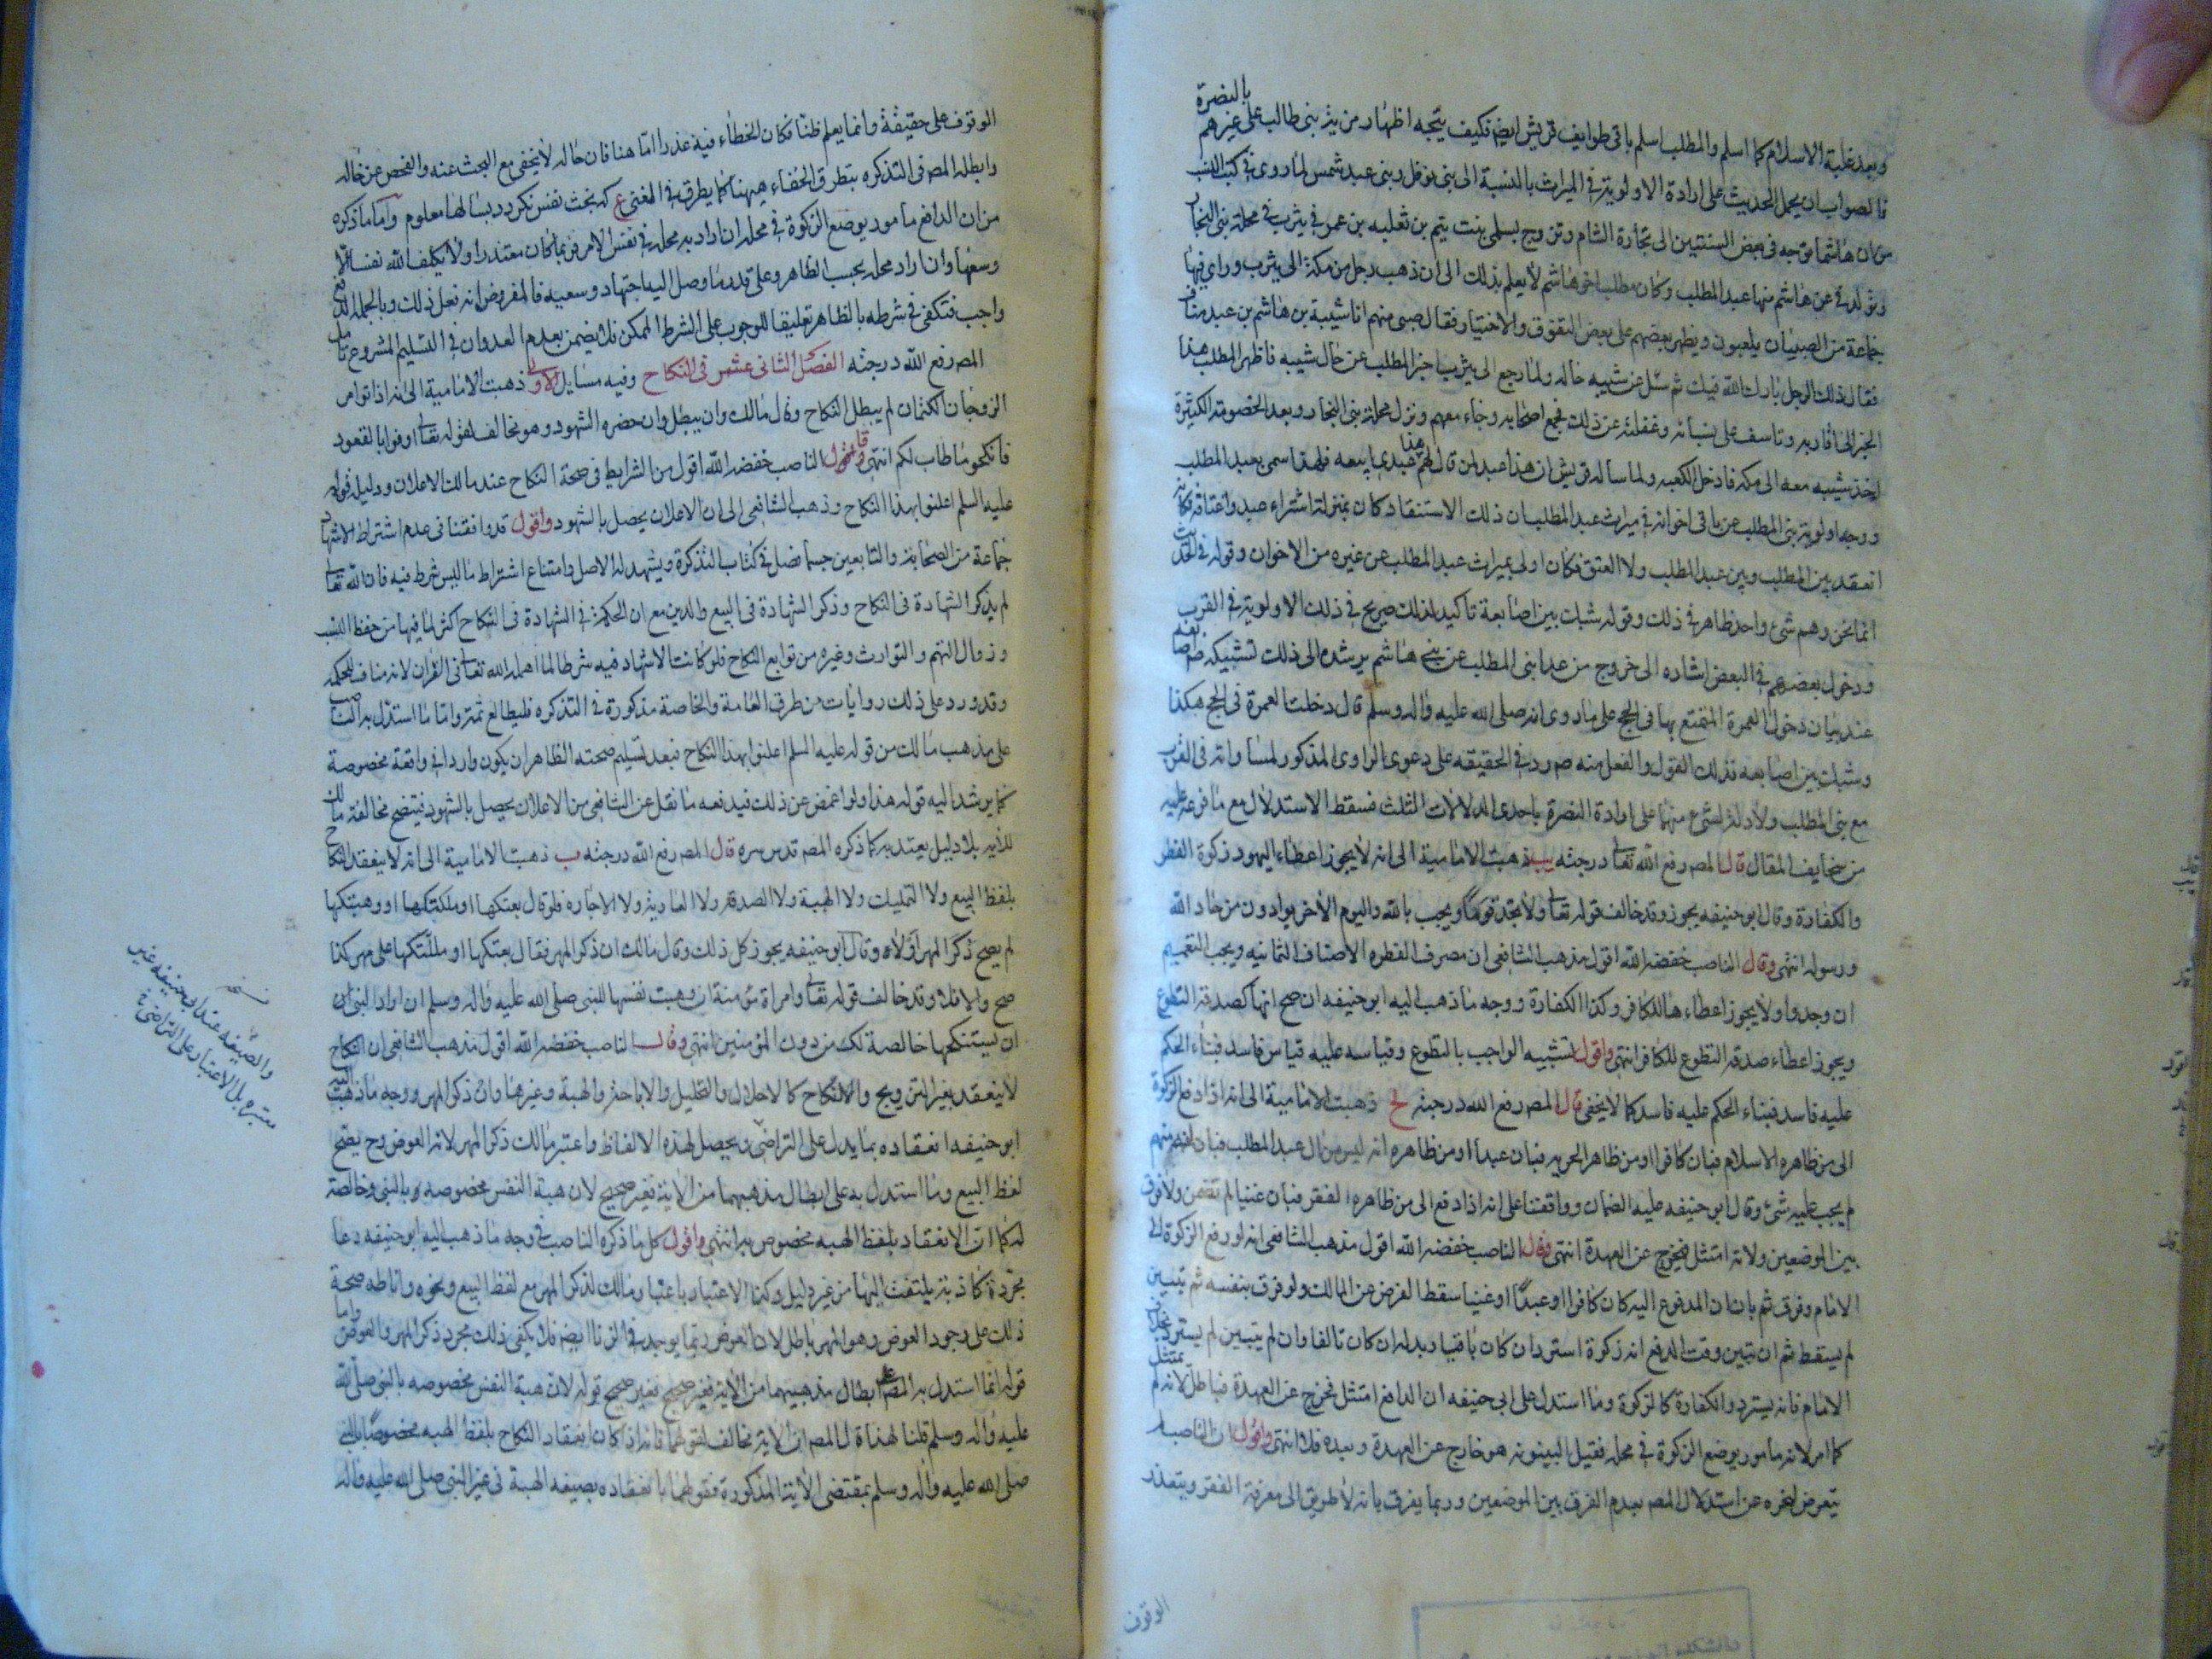 وبعد غلبة الاسلام كما اسلم والمطلب اسلم باقى طوايف قريش ايضم فكيف يتجه اظهار من ية بنى طالب على غيرهم
بالنصرة
فالصواب ان يحمل الحديث على ارادة الاولوية فى الميراث بالنسبة الى بنى نوفل وبنى عبد شمس لما روى فى كتب النسب
من ان هاشما توجه فى بعض السنتين الى تجارة الشام وتزوج بسلمى بنت يتيم بن ثعلبه بن عمرو فى يثرب فى محلة بنى النجار
وتولد عن هاشم منها عبد المطلب وكان مطلب اخو هاشم لا يعلم بذلك الى ان ذهب رجل من مكة الى يثرب وراى فيها
جماعة من الصبيان يلعبون ويظهر بعضهم على بعض التفوق والاختيار فقال صبى منهم انا شيبة بن هاشم بن عبد مناف
فقال ذلك الرجل بارك الله فيك ثم سئل عن شيبه حاله ولما رجع الى يثرب اخبر المطلب عن حال شيبه فاظهر المطلب هذا
الخبر الى اقاربه وتاسف على نسيانه وغفلته عن ذلك فجمع اصحابه وجاء معهم ونزل محلة بنى النجار وبعد الخصومة الكثيرة
اخذ شيبه معه الى مكه فادخل الكعبه ولما ساله قريش ان هذا عبد لمن قال لهم هذا عبدى ابيعه فلهذا سمى بعبد المطلب
ووجه اولوية بنى المطلب عن باقى اخوانه فى ميراث عبد المطلب ان ذلك الاستنقاد كان بمنزلة اشتراء عبد واعتاقه فكانه
انعقد بين المطلب وبين عبد المطلب ولاا العتق فكان اولى بميراث عبد المطلب عن غيره من الاخوان وقوله فى الحديث
انما نحن وهم شئ واحد ظاهر فى ذلك وقوله شبك بين اصابعه تاكيد لذلك صريح فى ذلك الاولوية فى القرب
ودخول بعضهم فى البعض اشاره الى خروج من عدا بنى المطلب عن بنى هاشم يرشده الى ذلك تشبيكه صم اصابعه
عند بيان دخول العمرة المتمتع بها فى الحج على ما روى انه صلى الله عليه واله وسلم قال دخلت العمرة فى الحج هكذا
وشبك بين اصابعه فذلك القول والفعل منه صم رد فى الحقيقه على دعوى الراوى المذكور لمساواته فى القرب
مع بنى المطلب ولا دلالة لشئ منهما على ارادة النصرة باحدى الدلالات الثلث فسقط الاستدلال مع ما فرعه عليه
من سخايف المقال قال المصم رفع الله تعالى درجته يب ذهبت الامامية الى انه لا يجوز اعطاء اليهود زكوة الفطر
والكفارة وقال ابو حنيفه يجوز وقد خالف قوله تعالى ولا تجد قوما ويجب بالله واليوم الاخر يوادون من حاد الله
ورسوله انتهى وقال الناصب خفضه الله اقول مذهب الشافعى ان مصرف الفطره الاصناف الثمانيه ويجب التعميم
ان وجدوا ولا يجوز اعطاءها للكافر وكذا الكفارة ووجه ما ذهب اليه ابو حنيفه ان صح انها كصدقة التطوع
ويجوز اعطاء صدقة التطوع للكافر انتهى واقول تشبيه الواجب بالتطوع وقياسه عليه قياس فاسد فبناء الحكم
عليه فاسد فبناء الحكم عليه فاسد كما لا يخفى قال المصم رفع الله درجته لج ذهبت الامامية الى انه اذا دفع الزكوة
الى من ظاهره الاسلام فبان كافرا او من ظاهر الحريه فبان عبدا او من ظاهره انه ليس من ال عبد المطلب فبان انه منهم
لم يجب عليه شئ وقال ابو حنيفه عليه الضمان ووافقنا على انه اذا دفع الى من ظاهره الفقر فبان غنيا لم تضمن ولا فرق
بين الموضعين ولانه امتثل فيخرج عن العهدة انتهى وقال الناصب خفضه الله اقول مذهب الشافعى انه لو رفع الزكوة الى
الامام وفرق ثم بان ان المدفوع اليه كان كافرا او عبدا او غنيا سقط الفرض عن المالك ولو فرق بنفسه ثم تبين
لم يسقط ثم ان تبين وقت الدفع انه زكوة استرد ان كان باقيا وبدله ان كان تالفا وان لم يتبين لم يسترد بخلاف
الامام فانه يسترد والكفارة كالزكوة وما استدل على ابى حنيفه ان الدافع امتثل فخرج عن العهدة فباطل لانه لم يمتثل
كما امر لانه مامور بوضع الزكوة فى محله فقيل البينونه هو خارج عن العهدة وبعده فلا انتهى واقول ان الناصب
يتعرض لعجزه عن استدلال المصم بعدم الفرق بين الموضعين وربما يفرق بانه لا طريق الى معرفة الفقر ويتعذر
الوقوف
الوقوف على حقيقة وانما يعلم ظنا فكان الخطاء فيه عذرا اما هنا فان حاله لا يخفى مع البحث عنه والفحص عن حاله
وابطله المصم فى التذكره بتطرق الخفاء هيهنا كما يطرق فى المغنى ع كه بخث نفس نكردد بسالها معلوم واما ما ذكره
من ان الدافع مامور بوضع الزكوة فى محله ان اراد به محله فى نفس الامر فربما كان متعذرا ولا يكلف الله نفسا الا
وسعها وان اراد محله بحسب الظاهر وعلى قدر ما وصل اليه اجتهاد وسعيه فالمفروض انه فعل ذلك وبالجمله الدفع
واجب فتكفى فى شرطه بالظاهر تعليقا للوجوب على الشرط الممكن فلا يضمن بعدم العدوان فى التسليم المشروع تامل
المصم رفع الله درجته الفصل الثانى عشر فى النكاح وفيه مسايل الاولى ذهبت الامامية الى انه اذا تواصى
الزوجان الكتمان لم يبطل النكاح وقال مالك وان يبطل وان حضره الشهود وهو نخالف لقوله تعالى اوفوا بالعقود
فانكحوا ما طاب لكم انتهى وقال الناصب خفضه الله اقول من الشرايط فى صحة النكاح عند مالك الاعلان ودليله قوله
عليه السلم اعلنوا بهذا النكاح وذهب الشافعى الى ان الاعلان يحصل بالشهود واقول قد وافقنا فى عدم اشتراط الاشهاد
جماعة من الصحابة والتابعين حسما فصل فى كتاب التذكرة ويشهد له الاصل وامتناع اشتراط ما ليس شرط فيه فان الله تعالى
لم يذكر الشهادة فى النكاح وذكر الشهادة فى البيع والدين مع ان الحكمة فى الشهادة فى النكاح اكثر لما فيها من حفظ النسب
وزوال التهم والتوارث وغيره من توابع النكاح فلو كانت الاشهاد فيه شرطا لما اهمله الله تعالى فى القران لانه مناف للحكمه
وقد ورد على ذلك روايات من طرق العامة والخاصة مذكورة فى التذكره فليطالع ثمة واما ما استدل به الناصب
على مذهب مالك من قوله عليه السلم اعلنوا بهذا النكاح فبعد تسليم صحته الظاهر ان يكون واردا فى واقعة مخصوصة
كما يرشد اليه قوله هذا ولو اغمض عن ذلك فيدفعه ما نقل عن الشافعى من الاعلان يحصل بالشهود فيتضح مخالفة مالك
للاية بلا دليل يعتد به كما ذكره المصم قدس سره قال المصم رفع الله درجته ب ذهبت الامامية الى انه لا ينعقد النكاح
بلفظ البيع ولا التمليك ولا الهبة ولا الصدقه ولا العارية ولا الاجاره فلو قال بعتكها او ملكتكها او وهبتكها
لم يصح ذكر المهر او لا وقال ابو حنيفه يجوز كل ذلك وقال مالك ان ذكر المهر فقال بعتكها او ملكتكها على مهر كذا
صح والا فلا وقد خالف قوله تعالى وامراة مؤمنة ان وهبت نفسها للنبى صلى الله عليه واله وسلم ان اراد النبى ان
ان يستنكحها خالصة لك من دون المؤمنين انتهى وقال الناصب خفضه الله اقول مذهب الشافعى ان النكاح
لا ينعقد بغير التزويج والانكاح كالاحلال والتحليل والاباحة والهبة وغيرها وان ذكر المهر ووجه ما ذهب اليه
ابو حنيفه انعقاده بما يدل على التراضى ويحصل لهذه الالفاظ واعتبر مالك ذكر المهر لانه العوض وح يصح
لفظ البيع وما استدل به على ابطال مذهبهما من الاية فغير صحيح لان هبة النفس مخصوصه بالنبى وخالصة
له كما ان الانعقاد بلفظ الهبه مخصوص به انتهى واقول كل ما ذكره الناصب فى وجه ما ذهب اليه ابو حنيفه دعا
مجردة كاذبة يلتفت اليها من غير دليل وكذا الاعتبار باعتبار مالك لذكر المهر مع لفظ البيع ونحوه واناطه صحة
ذلك على وجود العوض وهو المهر باطل لان العوض ربما يوجد فى الزنا ايضم فلا يكفى ذلك مجرد ذكر المهر والعوض واما
قوله انما استدل به المصم على ابطال مذهبيهما من الاية فغير صحيح فغير صحيح قوله لان هبة النفس مخصوصه بالنبى صلى الله
عليه واله وسلم قلنا لهذا قال المصم ان الاية نخالف لقولهما فانه اذا كان انعقاد النكاح بلفظ الهبه مخصوصا بالنبى
صلى الله عليه واله وسلم بمقتضى الاية المذكورة فقولهما بانعقاده بصيغه الهبة فى غير النبى صلى الله عليه واله
والصيغه عند ابى حنيفه غير
معتبره بل الاعتبار على التراضى